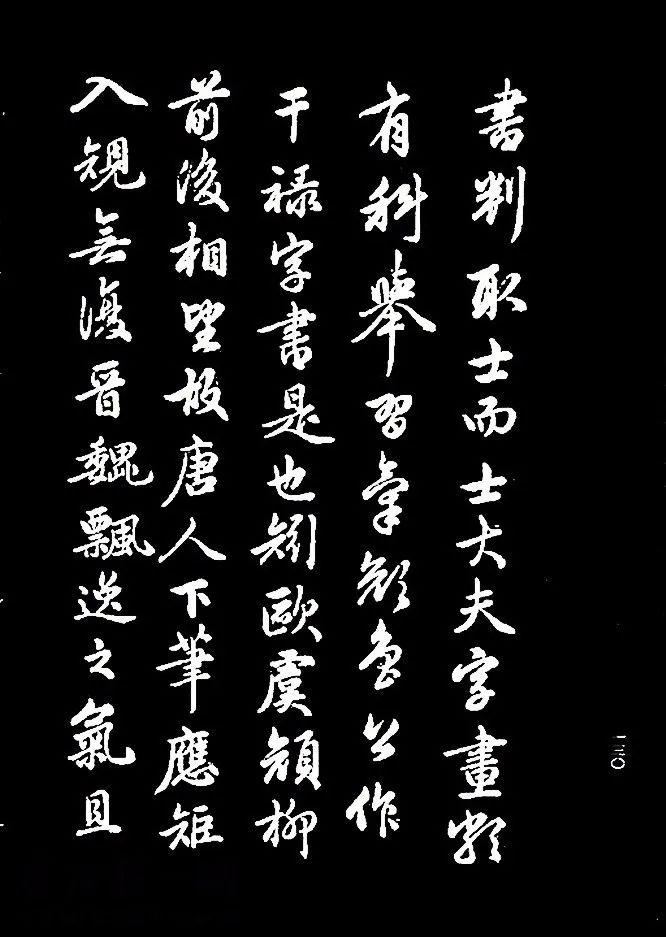 書判取士而士大夫字畫類
有科舉習氣顏魯公作
干祿字書是也矧歐虞顏柳
前後相望故唐人下筆應矩
入規無復晉魏飄逸之氣且